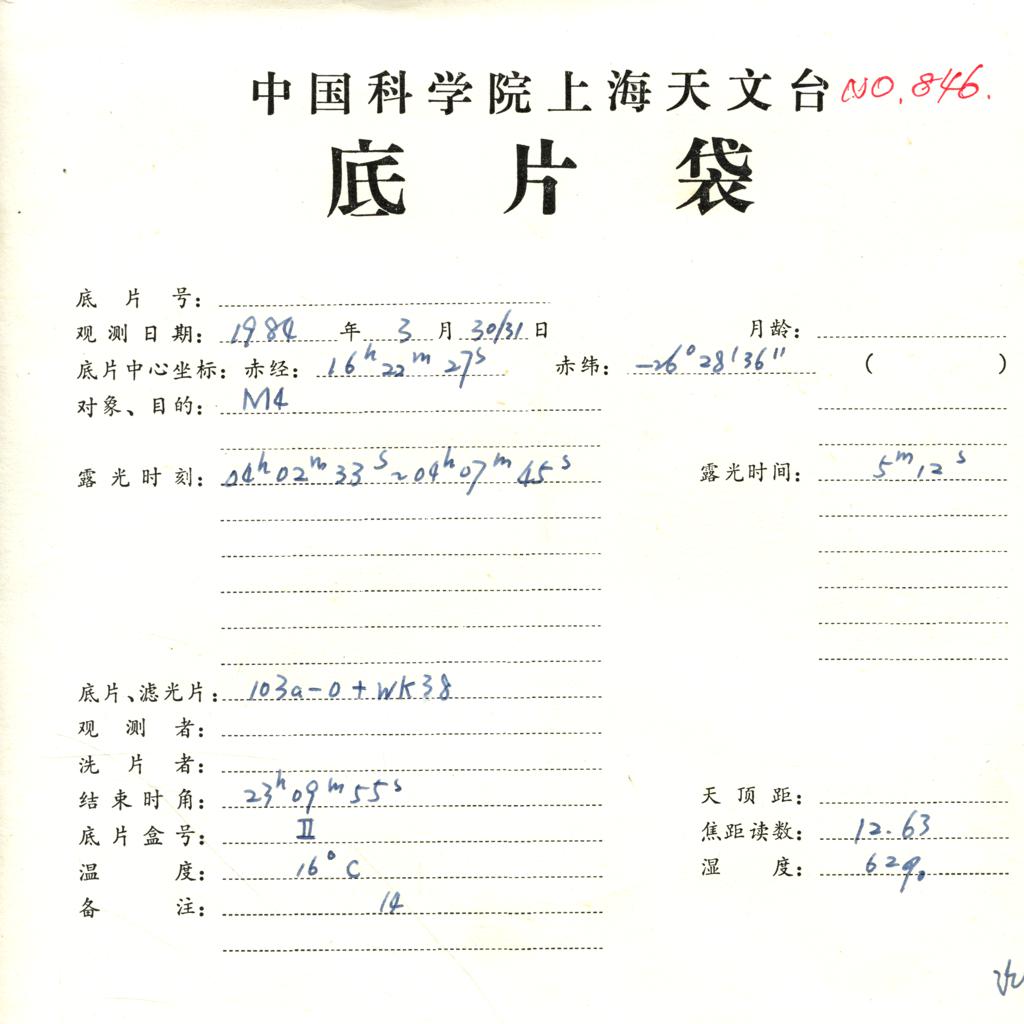 中国科学院上海天文台 NO.846.
底片袋
底片号：
观测日期：1984年3月30/31日 月龄：
底片中心坐标：赤经：16h22m27s 赤纬：-26°28'36" ( )
对象、目的：M4
露光时刻：04h02m33s~04h07m45s 露光时间：5m12s
底片、滤光片：103a-O+WK38
观测者：
洗片者：
结束时角：23h09m55s 天顶距：
底片盒号：II 焦距读数：12.63
温度：16°C 湿度：62%
备注：14